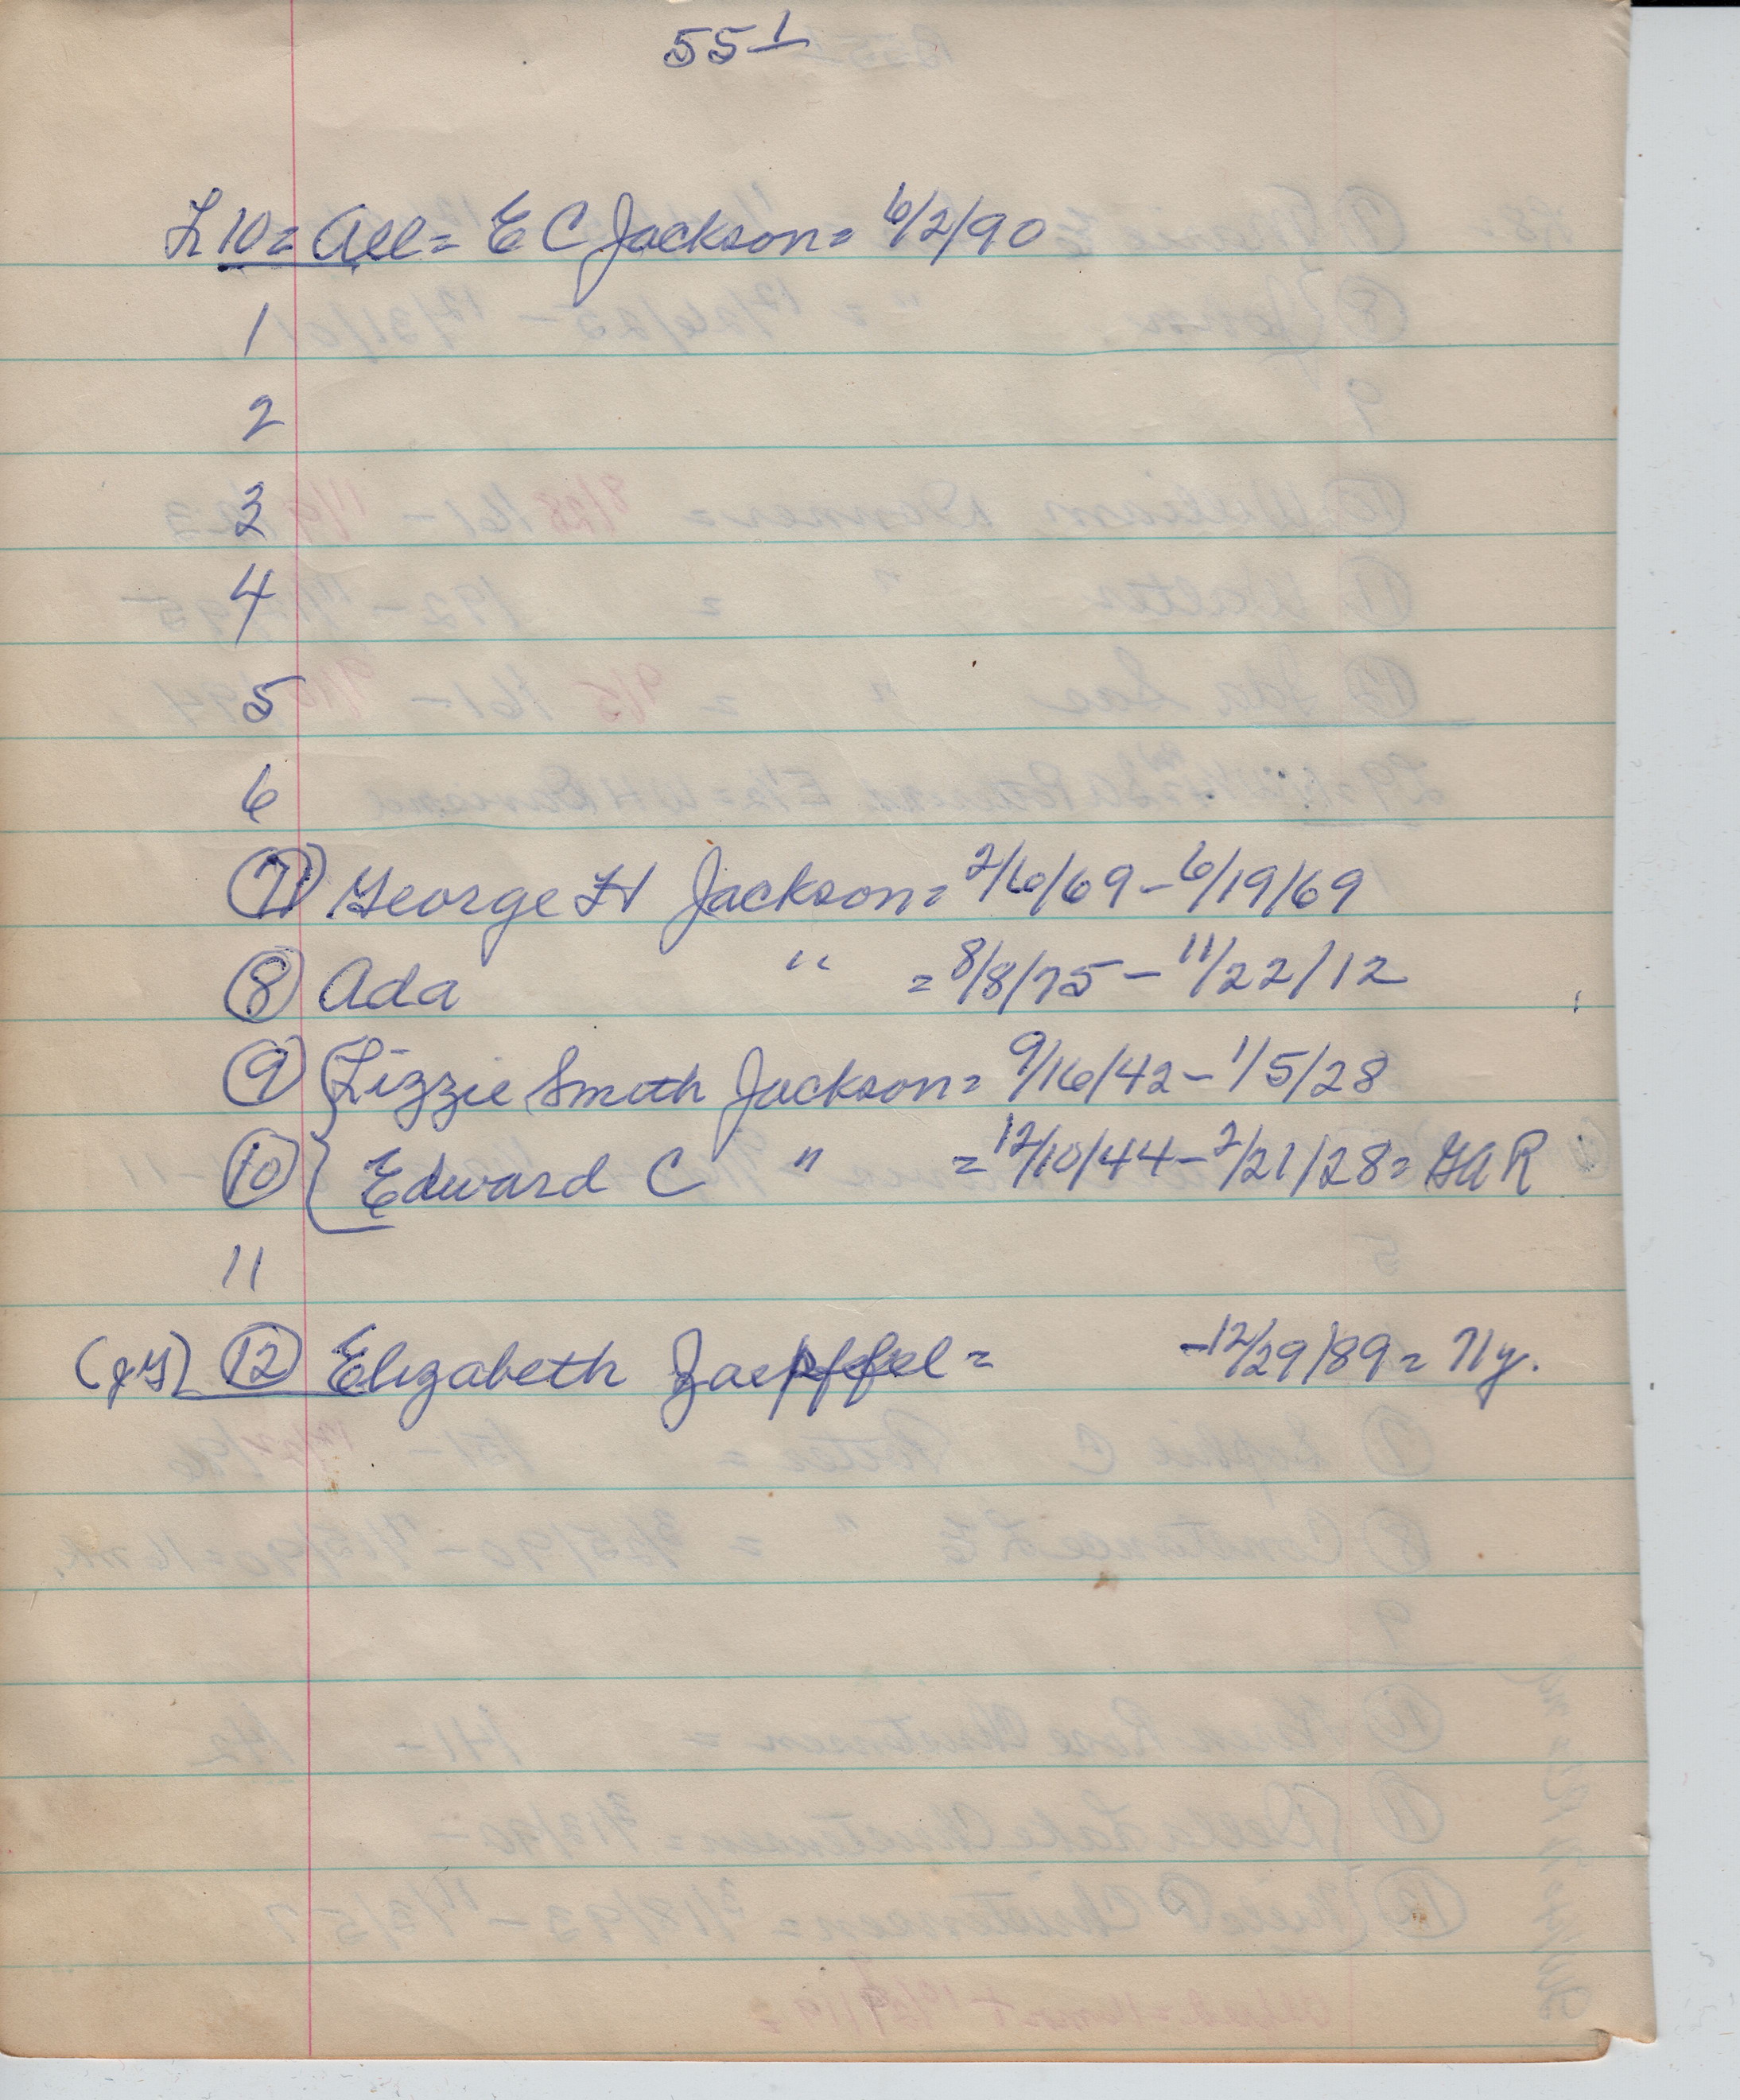 55 1
L 10 = All = E C Jackson = 6/2/90
1
2
3
4
5
6
7 George H Jackson = 2/6/69 - 6/19/69
8 Ada " = 8/8/75 - 11/22/12
9 Lizzie Smith Jackson = 9/16/42 - 1/5/28
10 Edward C " = 12/10/44 - 2/21/28 = GAR
11
12 Elizabeth Zaepffel = - 12/29/89 = Ny.